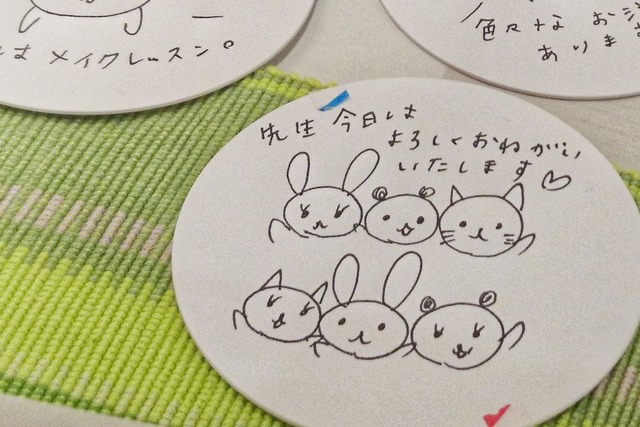 は メイクレッスン。
色々な お
あり ま
先生 今日は
よろしくおねがい
いたします♡